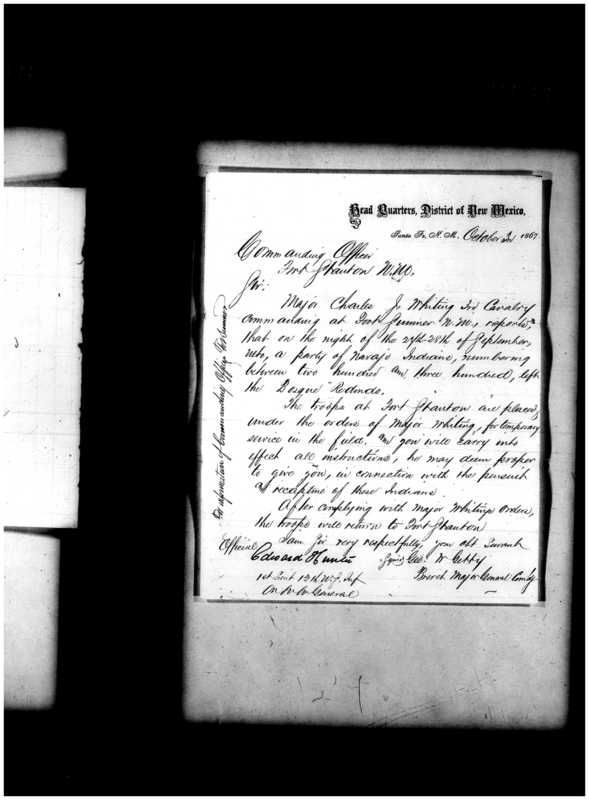 Head Quarters, District of New Mexico,
Santa Fe, N. M. October 1867
Commanding Officer
Fort Stanton N.M.
Sir:
Major Charles J. Whiting 3rd Cavalry
Commanding at Fort Sumner N.M., reports,
that on the night of the 27th 28th of September,
Ulto, a party of Navajo Indians, numbering
between two hundred and three hundred, left
the Bosque Redondo.
The troops at Fort Stanton are placed
under the orders of Major Whiting, for temporary
service in the field. And you will carry into
effect all instructions, he may deem proper
to give you, in connection with the pursuit
recapture of these Indians.
After complying with Major Whitings orders,
the troops will return to Fort Stanton
I am Sir very respectfully, you obt Servant
Geo. W Getty
Brevet Major General Comdg
Official
Edward Hunter
1st Lieut 12th U.S. Inf
General
For information of Commanding Officer Ft Sumner